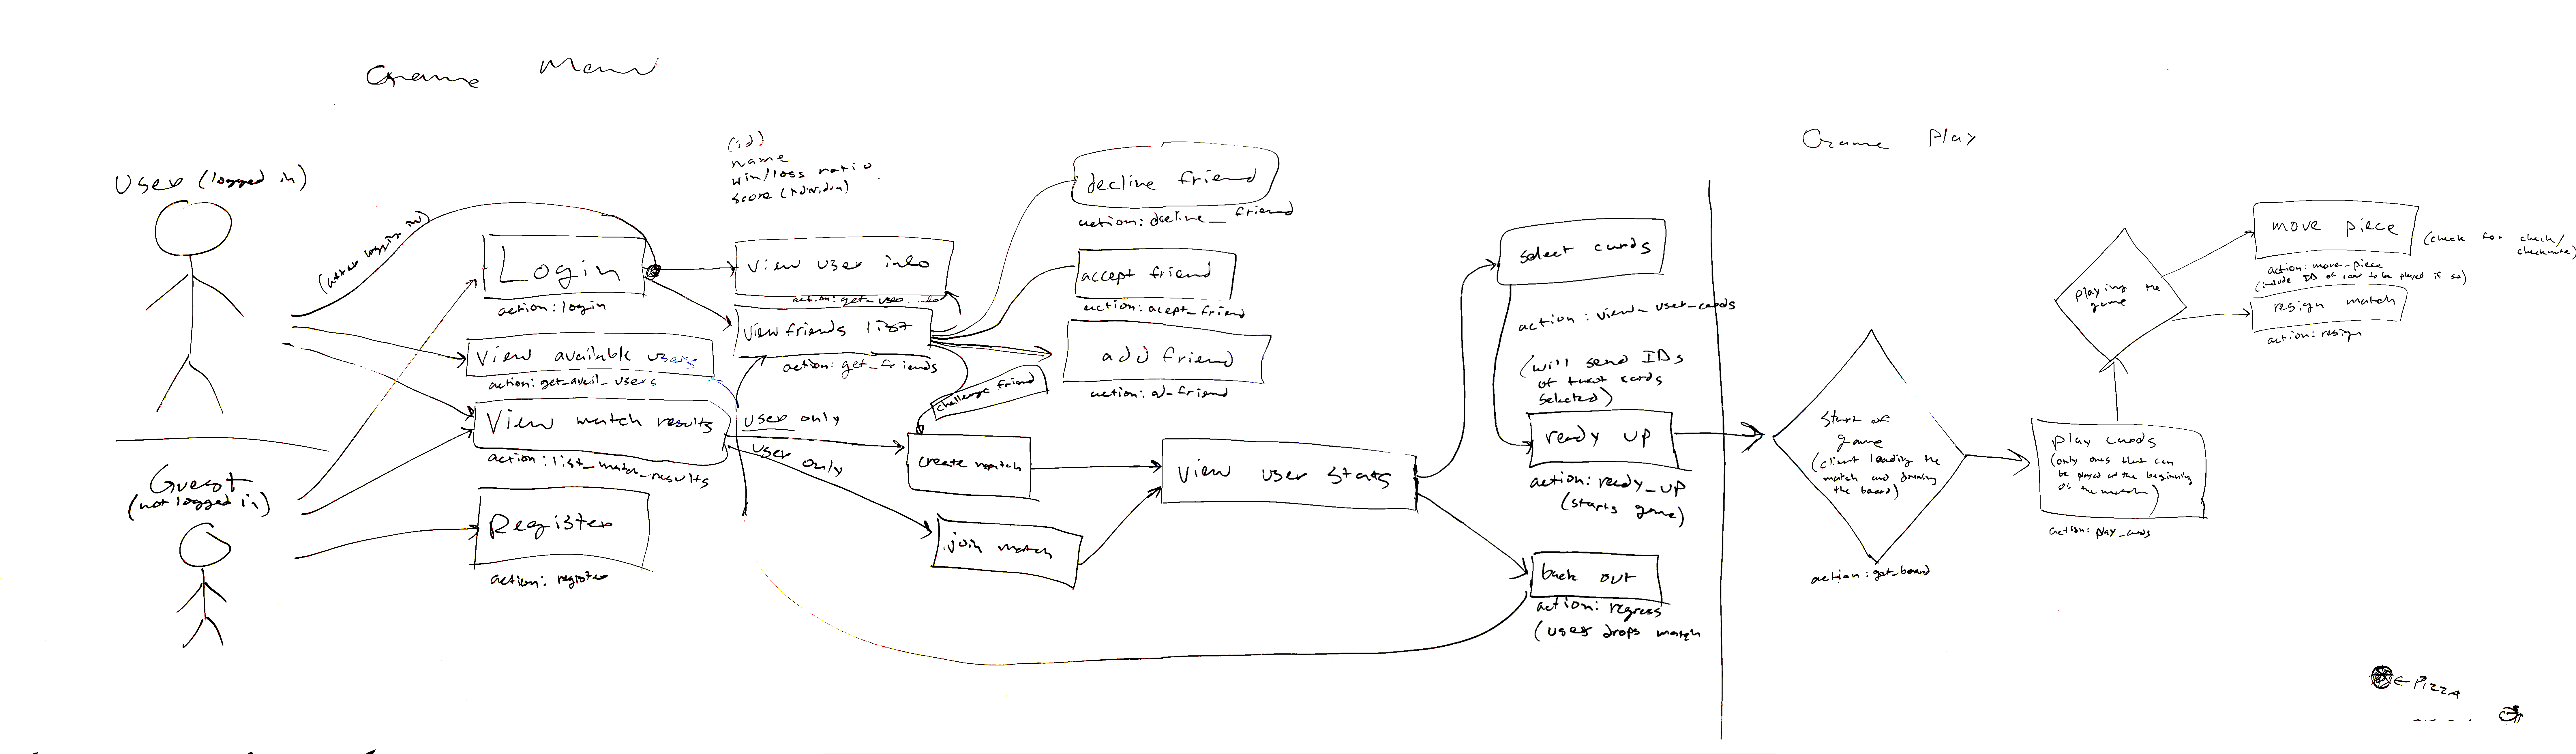 Game Menu
User (logged in)
(after logging in)
Login
action: login
View available users
action: get_avail_users
View match results
action: list_match_results
Guest
(not logged in)
Register
action: register
(id)
name
win/loss ratio
score
view user info
action: get_user_info
view friends list
action: get_friends
User only
User only
challenge friend
create match
join match
decline friend
action: decline_friend
accept friend
action: acept_friend
add friend
action: ad_friend
View user stats
select cards
action: view_user_cards
(will send IDs
of cards
selected)
ready up
action: ready_up
(starts game)
back out
action: regress
(user drops match
Game Play
Start of
game
(client loading the
match and drawing
the board)
action: get_board
play cards
(only ones that can
be played at the beginning
of the match)
action: play_cards
playing the
game
move piece
(check for check/
checkmate)
action: move_piece
(include ID of card to be played if so)
resign match
action: resign
← PIZZA